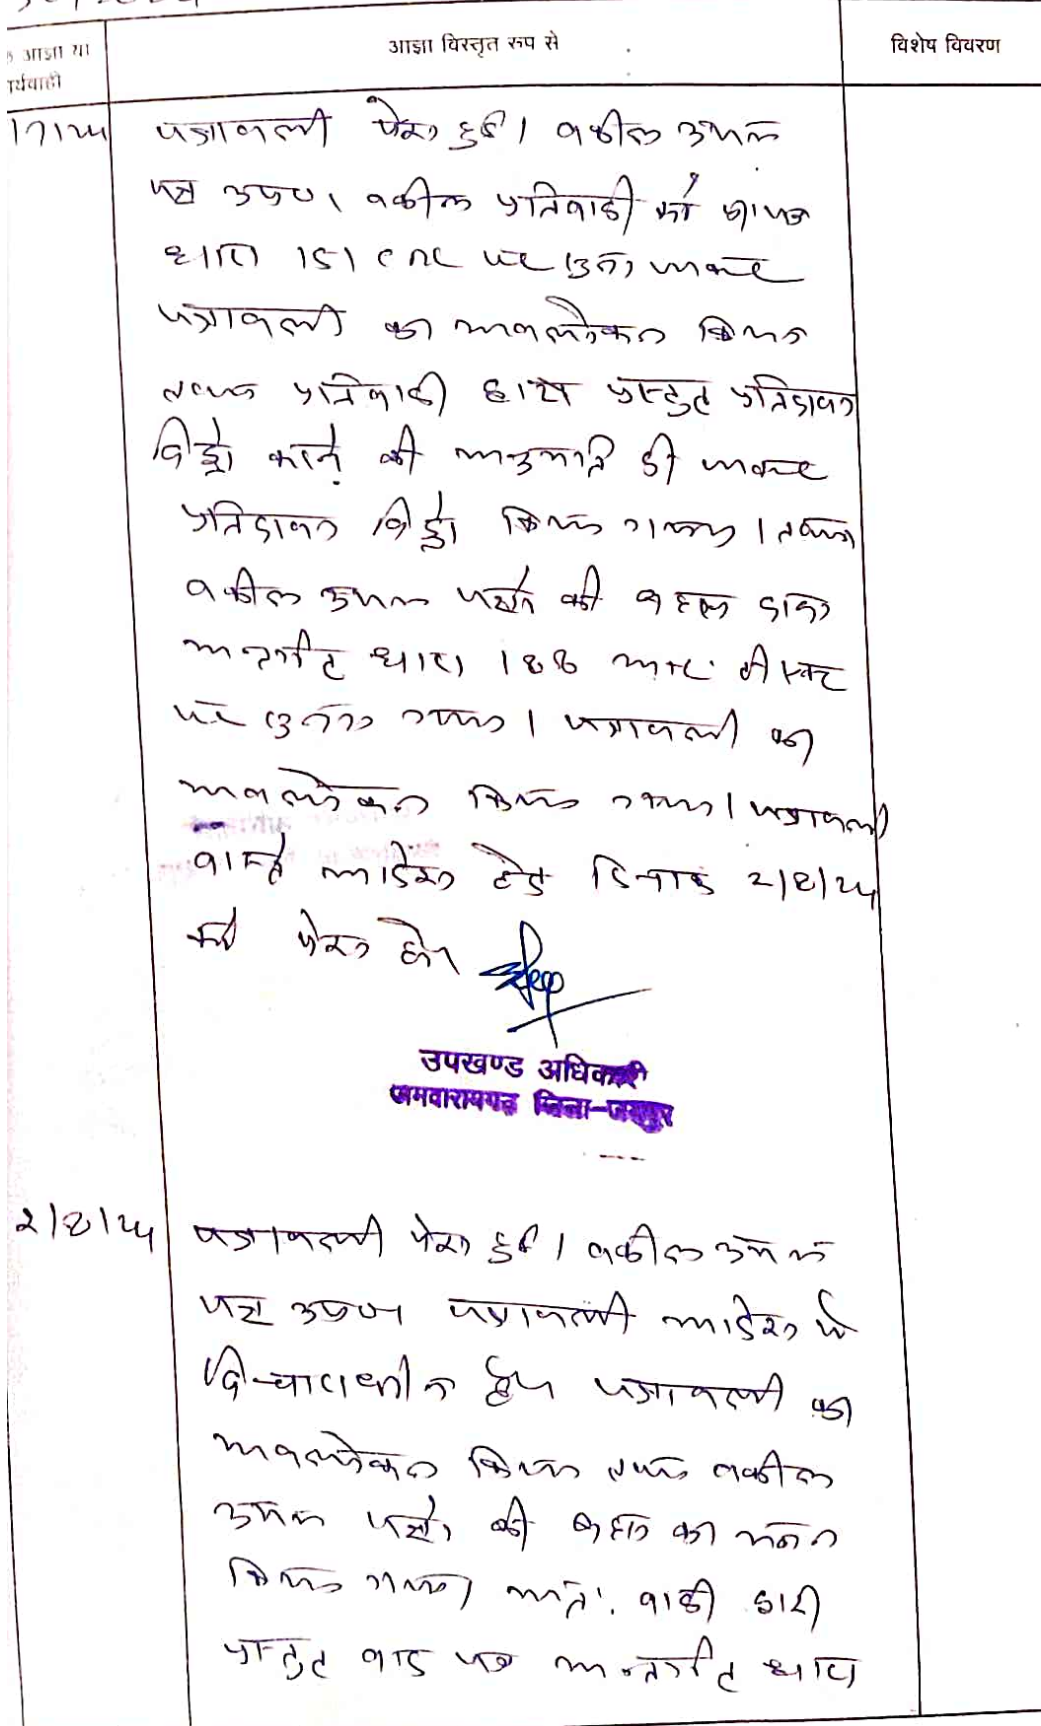 आज्ञा या
र्यवाही
आज्ञा विस्तृत रूप से
विशेष विवरण
पत्रावली पेश हुई। वकील उभय
पक्ष उप०। वकील प्रतिवादी को
धारा 151 CPC पर सुना जाकर
पत्रावली का अवलोकन किया
तथा प्रतिवादी द्वारा प्रस्तुत प्रतिदावा
विड्रो करने की अनुमति दी जाकर
प्रतिदावा विड्रो किया गया। तथा
वकील उभय पक्षो की बहस दावा
अन्तर्गत धारा 188 आर. टी एक्ट
पर सुना गया। पत्रावली का
अवलोकन किया गया। पत्रावली
वास्ते आदेश हेतु दिनांक 2/8/24
को पेश हो।
उपखण्ड अधिकारी
जमवारामगढ़ जिला-जयपुर
2/8/24
पत्रावली पेश हुई। वकील उभय
पक्ष उप० पत्रावली आदेश मे
विचाराधीन है। पत्रावली का
अवलोकन किया तथा वकील
उभय पक्षो की बहस का मनन
किया गया। अतः वादी द्वारा
प्रस्तुत वाद पत्र अन्तर्गत धारा